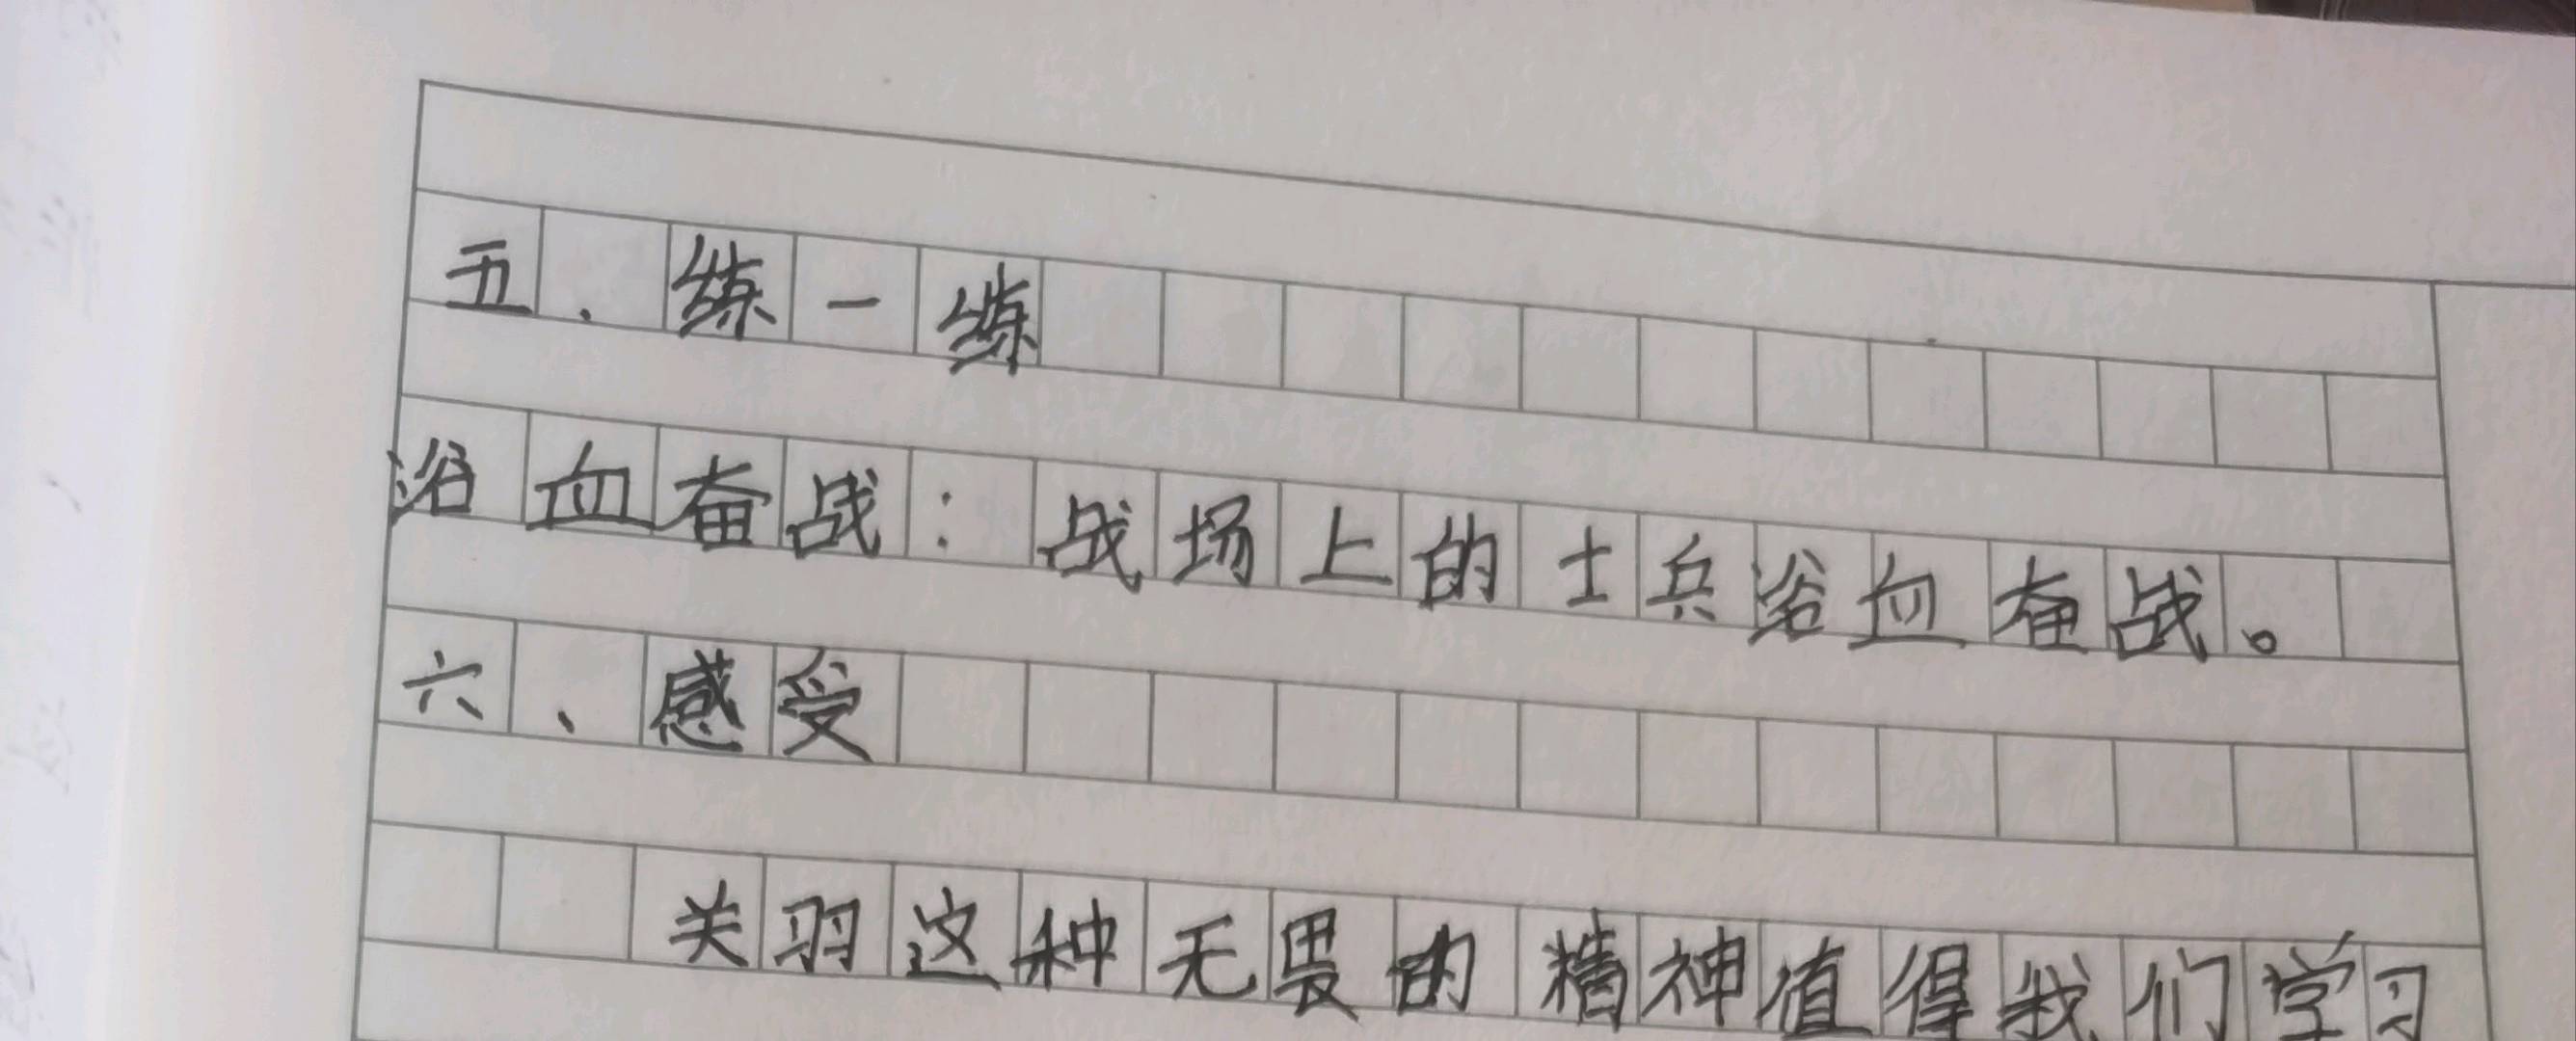 五、练一练
浴血奋战：战场上的士兵浴血奋战。
六、感受
关羽这种无畏的精神值得我们学习